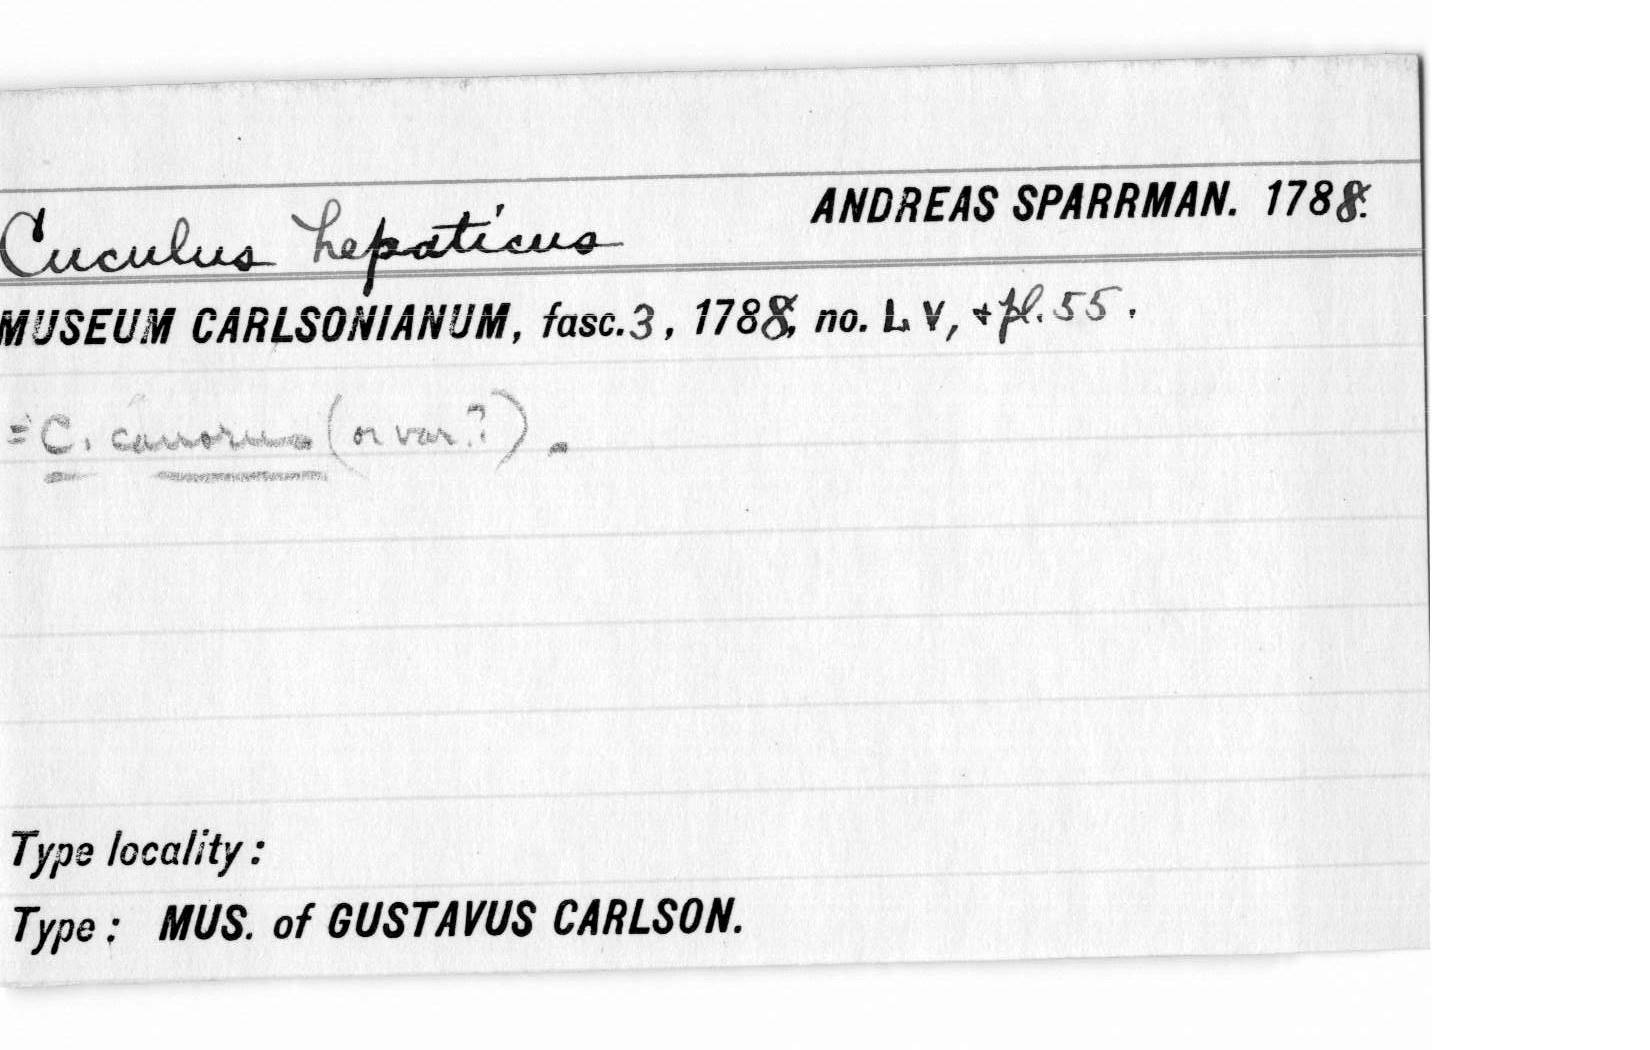 ANDREAS SPARRMAN. 1788.
Cuculus hepaticus
MUSEUM CARLSONIANUM, fasc. 3, 1788, no. LV, + pl. 55.
= C. canorus (or var.?).
Type locality:
Type: MUS. of GUSTAVUS CARLSON.